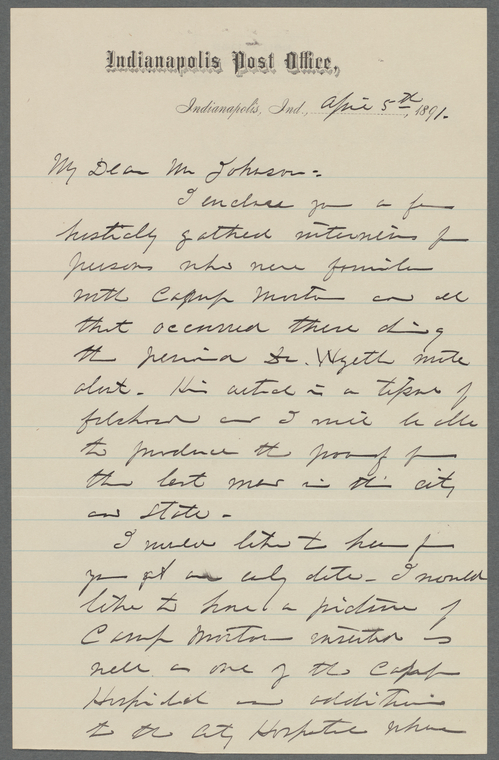 Indianapolis Post Office,
Indianapolis, Ind., April 5th, 1891.
My Dear Mr Johnson:
I enclose you a few
hastily gathered interviews from
persons who were familiar
with Camp Morton and all
that occurred there during
the period Dr. Wyeth wrote
about. His article is a tissue of
falsehood and I will be able
to produce the proof from
the best men in this city
and State.
I would like to hear from
you at an early date. I would
like to have a picture of
Camp Morton inserted as
well as one of the Camp
Hospital in addition
to the City Hospital where